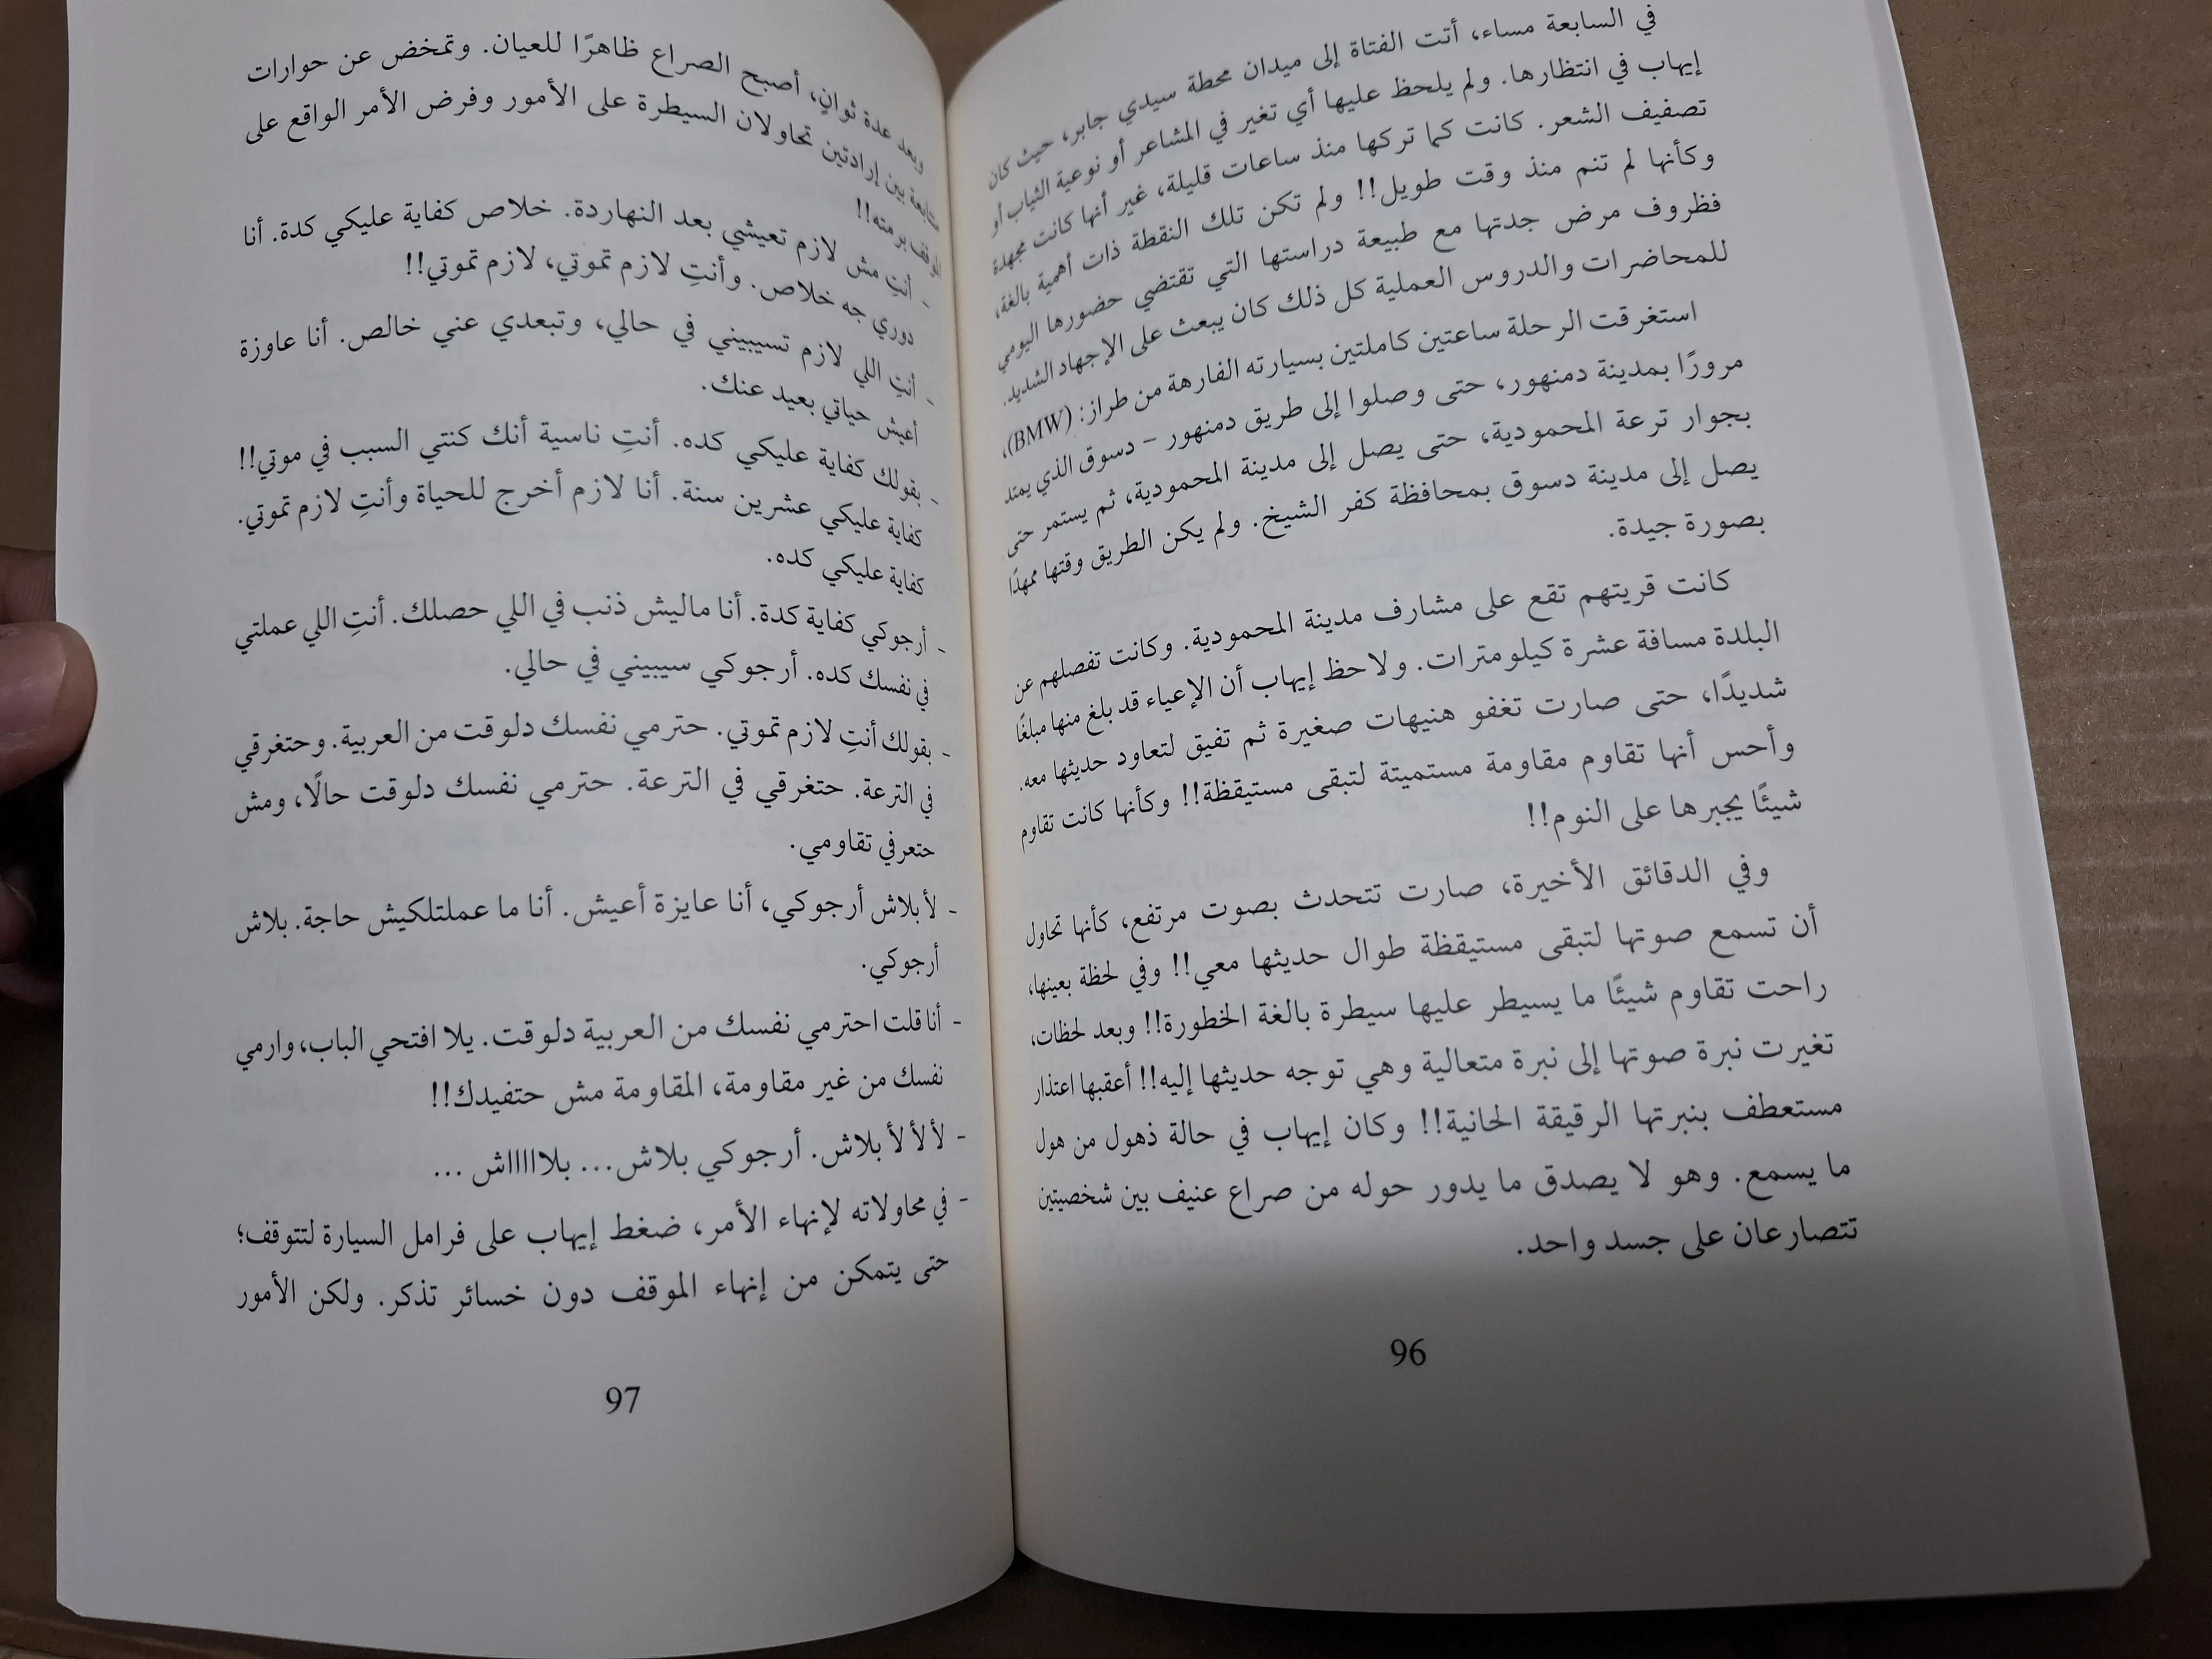 في السابعة مساء، أتت الفتاة إلى ميدان محطة سيدي جابر، حيث كان
إيهاب في انتظارها. ولم يلحظ عليها أي تغير في المشاعر أو نوعية الثياب أو
تصفيف الشعر. كانت كما تركها منذ ساعات قليلة، غير أنها كانت مجهدة
وكأنها لم تنم منذ وقت طويل!! ولم تكن تلك النقطة ذات أهمية بالغة،
فظروف مرض جدتها مع طبيعة دراستها التي تقتضي حضورها اليومي
للمحاضرات والدروس العملية كل ذلك كان يبعث على الإجهاد الشديد.
استغرقت الرحلة ساعتين كاملتين بسيارته الفارهة من طراز: (BMW)،
مرورًا بمدينة دمنهور، حتى وصلوا إلى طريق دمنهور – دسوق الذي يمتد
بجوار ترعة المحمودية، حتى يصل إلى مدينة المحمودية، ثم يستمر حتى
يصل إلى مدينة دسوق بمحافظة كفر الشيخ. ولم يكن الطريق وقتها ممهدًا
بصورة جيدة.
كانت قريتهم تقع على مشارف مدينة المحمودية. وكانت تفصلهم عن
البلدة مسافة عشرة كيلومترات. ولاحظ إيهاب أن الإعياء قد بلغ منها مبلغًا
شديدًا، حتى صارت تغفو هنيهات صغيرة ثم تفيق لتعاود حديثها معه.
وأحس أنها تقاوم مقاومة مستميتة لتبقى مستيقظة!! وكأنها كانت تقاوم
شيئًا يجبرها على النوم!!
وفي الدقائق الأخيرة، صارت تتحدث بصوت مرتفع، كأنها تحاول
أن تسمع صوتها لتبقى مستيقظة طوال حديثها معي!! وفي لحظة بعينها،
راحت تقاوم شيئًا ما يسيطر عليها سيطرة بالغة الخطورة!! وبعد لحظات،
تغيرت نبرة صوتها إلى نبرة متعالية وهي توجه حديثها إليه!! أعقبها اعتذار
مستعطف بنبرتها الرقيقة الحانية!! وكان إيهاب في حالة ذهول من هول
ما يسمع. وهو لا يصدق ما يدور حوله من صراع عنيف بين شخصيتين
تتصارعان على جسد واحد.
96
وبعد عدة ثوانٍ، أصبح الصراع ظاهرًا للعيان. وتمخض عن حوارات
متتابعة بين إرادتين تحاولان السيطرة على الأمور وفرض الأمر الواقع على
الموقف برمته!!
- أنتِ مش لازم تعيشي بعد النهاردة. خلاص كفاية عليكي كدة. أنا
دوري جه خلاص. وأنتِ لازم تموتي، لازم تموتي!!
- أنتِ اللي لازم تسيبيني في حالي، وتبعدي عني خالص. أنا عاوزة
أعيش حياتي بعيد عنك.
- بقولك كفاية عليكي كده. أنتِ ناسية أنك كنتي السبب في موتي!!
كفاية عليكي عشرين سنة. أنا لازم أخرج للحياة وأنتِ لازم تموتي.
كفاية عليكي كده.
- أرجوكي كفاية كدة. أنا ماليش ذنب في اللي حصلك. أنتِ اللي عملتي
في نفسك كده. أرجوكي سيبيني في حالي.
- بقولك أنتِ لازم تموتي. حترمي نفسك دلوقت من العربية. وحتغرقي
في الترعة. حتغرقي في الترعة. حترمي نفسك دلوقت حالًا، ومش
حتعرفي تقاومي.
- لأ بلاش أرجوكي، أنا عايزة أعيش. أنا ما عملتلكيش حاجة. بلاش
أرجوكي.
- أنا قلت احترمي نفسك من العربية دلوقت. يلا افتحي الباب، وارمي
نفسك من غير مقاومة، المقاومة مش حتفيدك!!
- لأ لأ لأ بلاش. أرجوكي بلاش... بلاااااش ...
- في محاولاته لإنهاء الأمر، ضغط إيهاب على فرامل السيارة لتتوقف؛
حتى يتمكن من إنهاء الموقف دون خسائر تذكر. ولكن الأمور
97